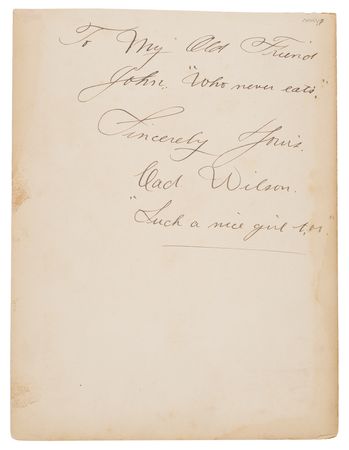 To My Old Friend
John, "Who never eats."
Sincerely Yours.
Cad Wilson.
"Such a nice girl too."